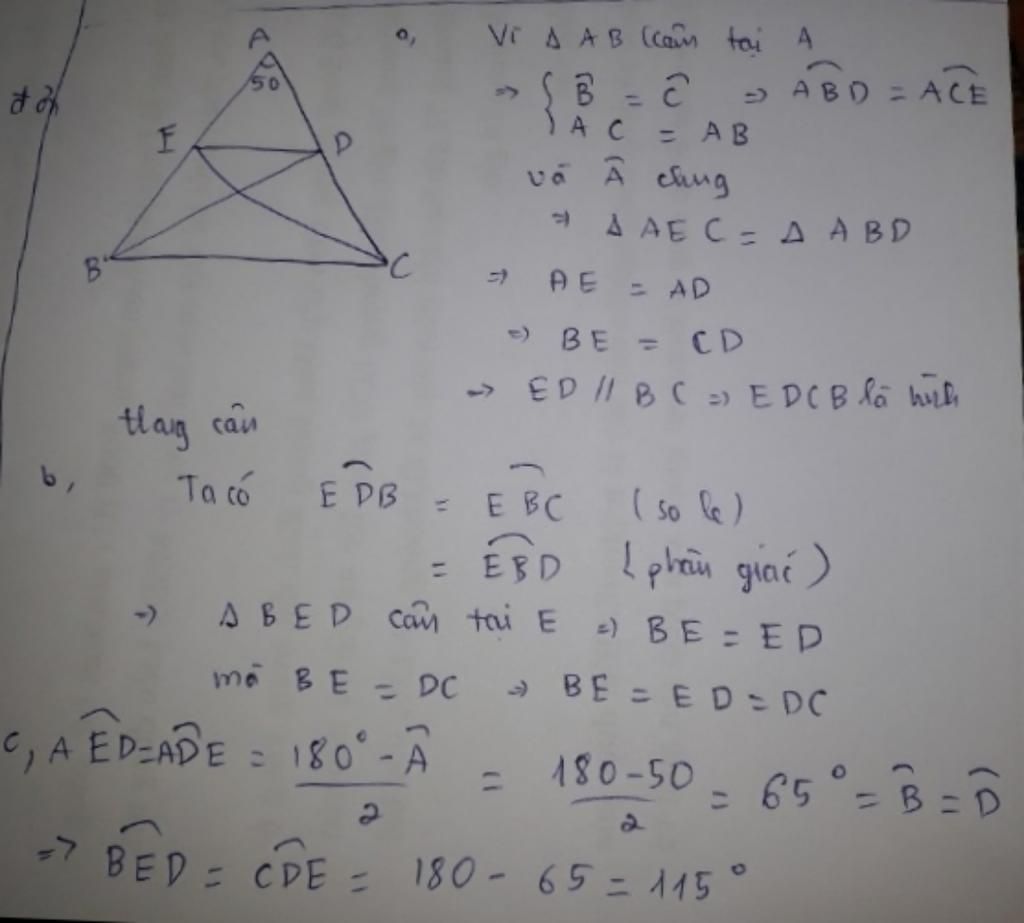 A
50
E
D
B
C
a, Vì Δ ABC cân tại A
=> { B̂ = Ĉ => ABD = ACE
AC = AB
và Â chung
=> Δ AEC = Δ ABD
=> AE = AD
=> BE = CD
=> ED // BC => EDCB là hình
thang cân
b, Ta có EDB = EBC (so le)
= EBD (phân giác)
=> Δ BED cân tại E => BE = ED
mà BE = DC => BE = ED = DC
c, AED = ADE = 180° - Â / 2 = 180 - 50 / 2 = 65° = B̂ = D̂
=> BED = CDE = 180 - 65 = 115°